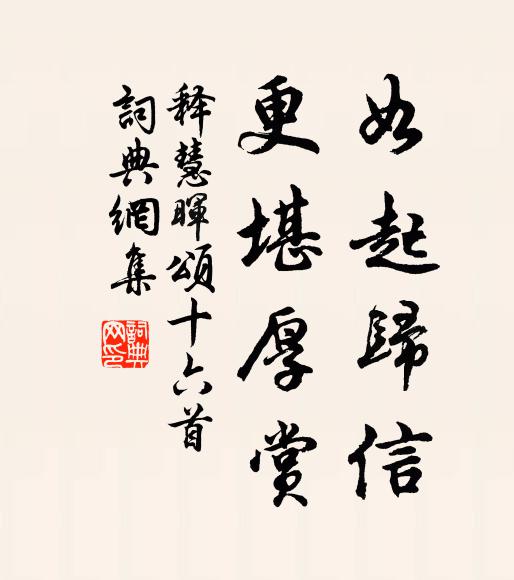 如起歸信
更堪厚賞
释慧暉頌十六首
詞典網集
詞典网印